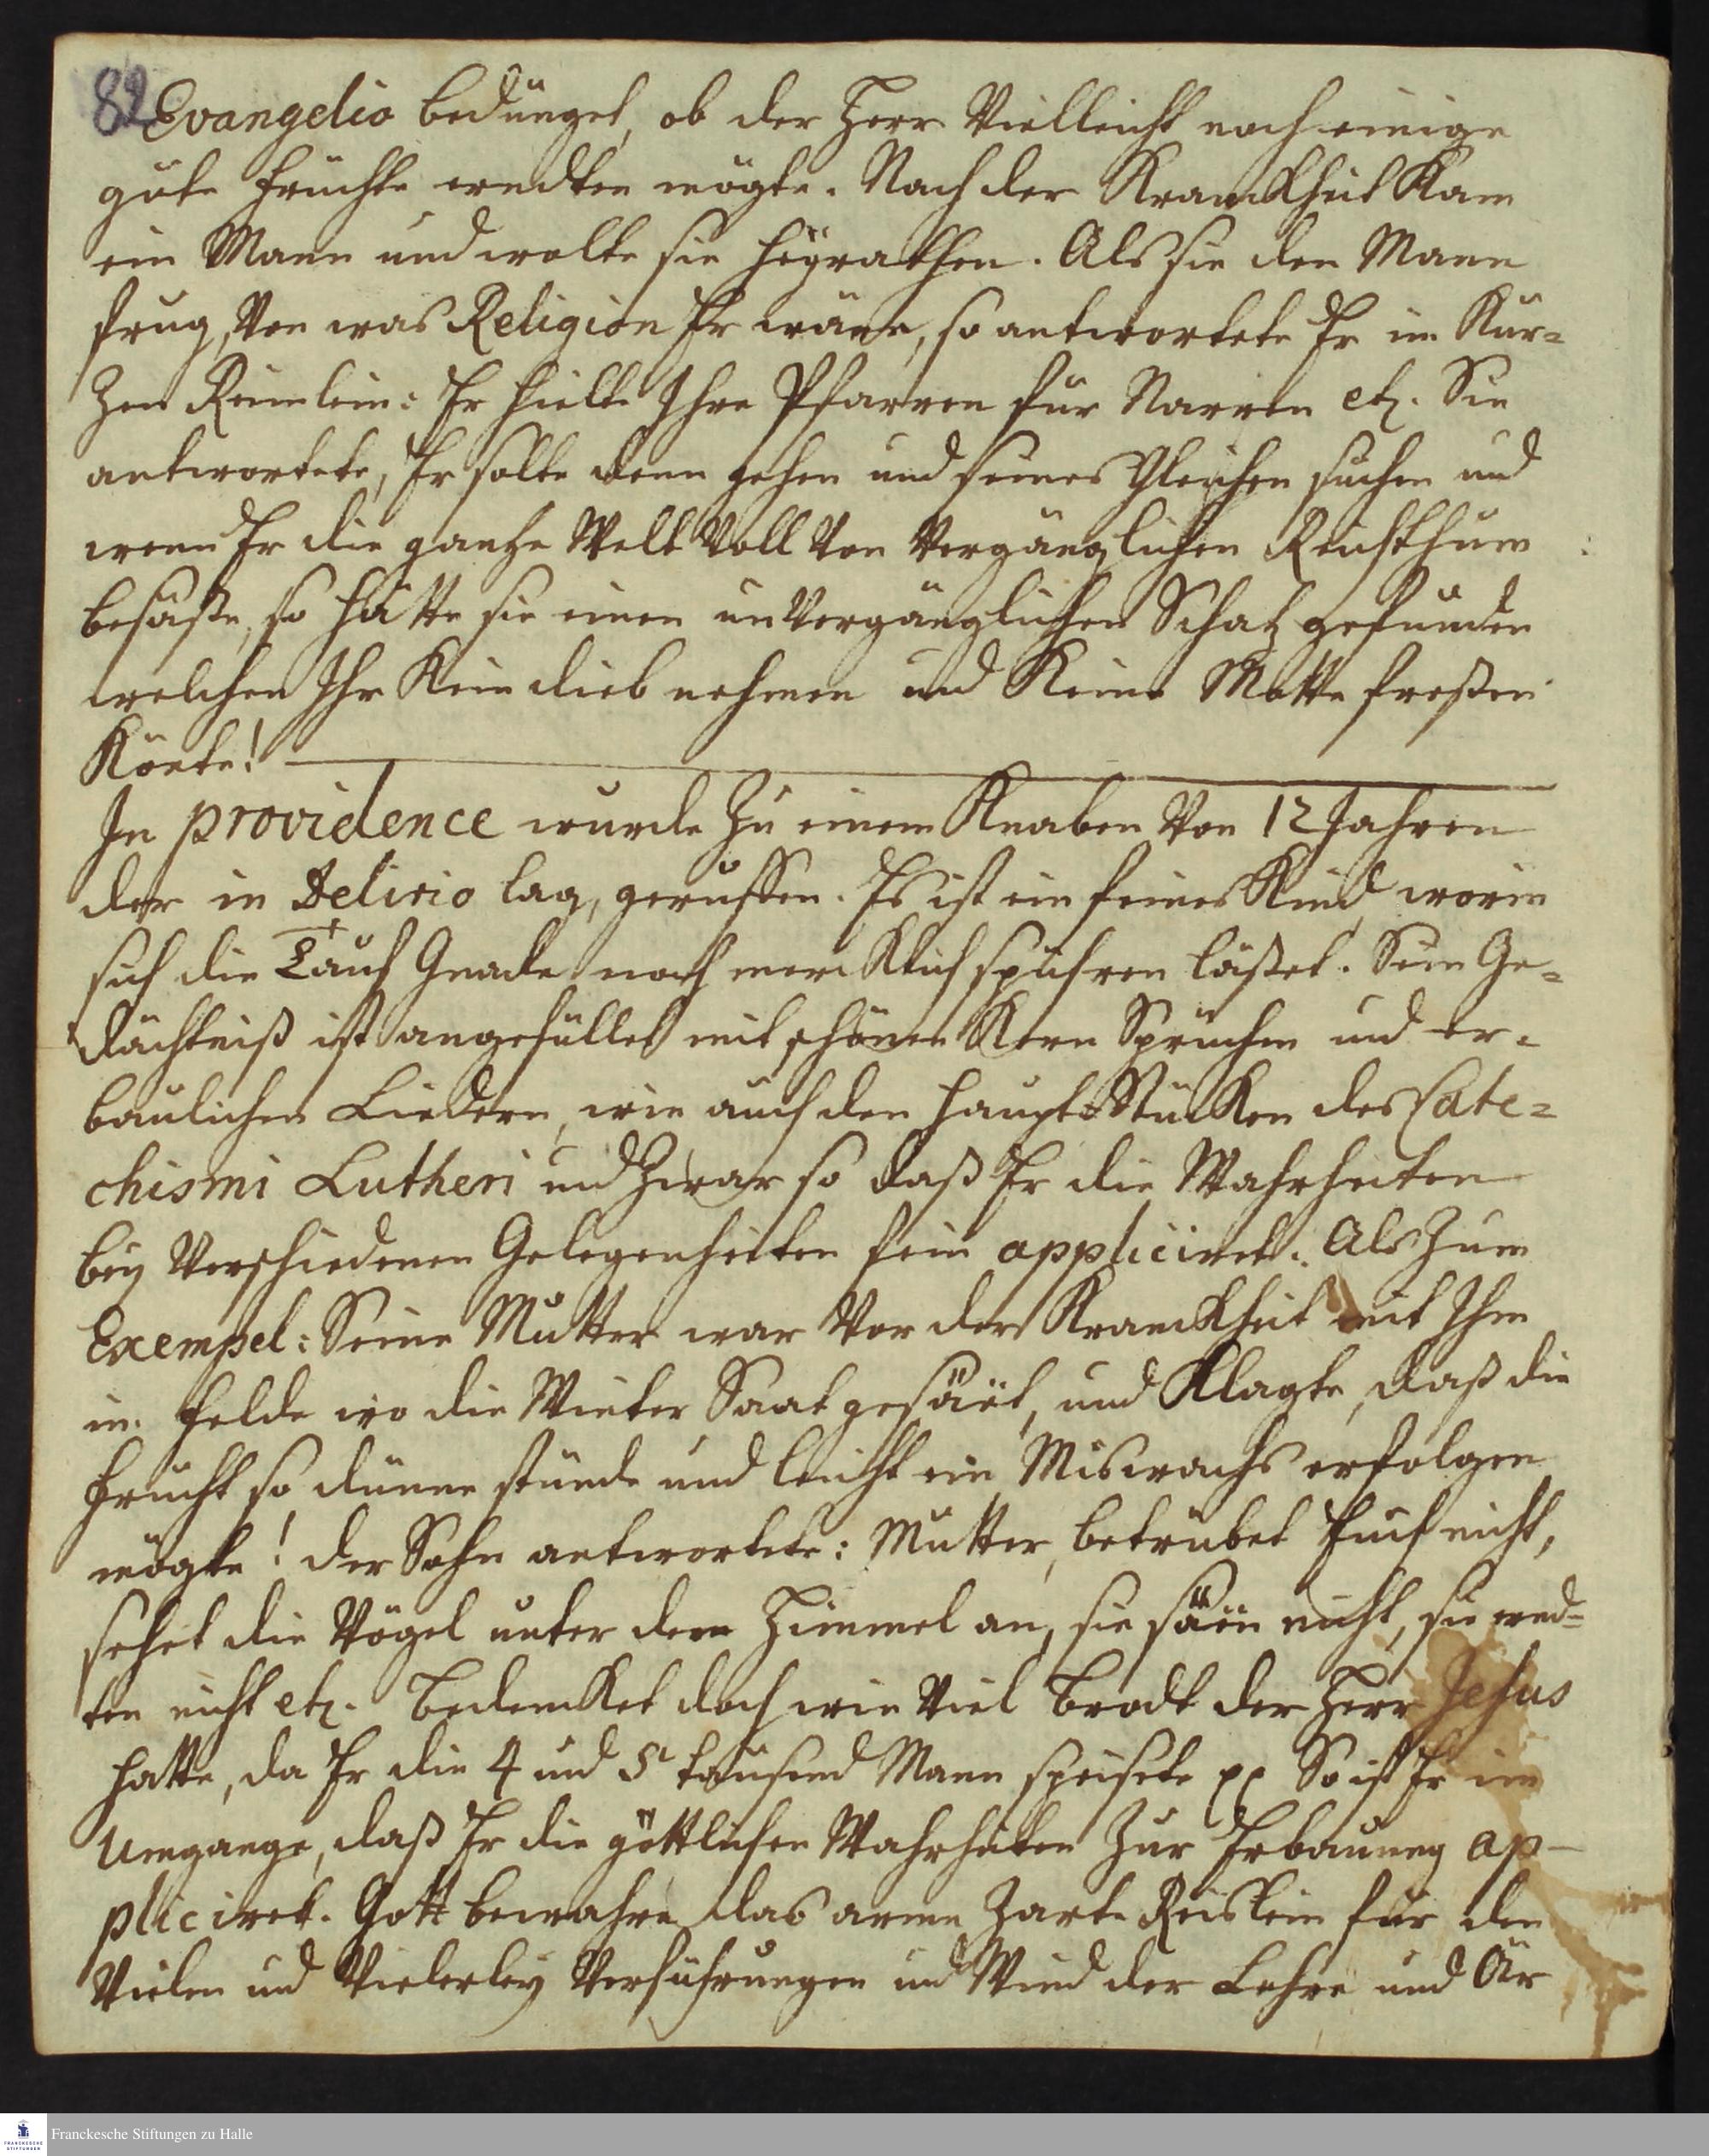 82 Evangelio bedünget, ob der Herr Vielleicht noch einige
gute Früchte erndten mögte. Nach der Kranckheit Kam
ein Mann und wolte sie heyrathen. Als sie den Mann
frug, Von was Religion Er wäre, so antwortete Er im Kur=
Zen Reimlein: Er hielte Ihre Pfarren für Narren etc. Sie
antwortete, Er solte denn gehen und seines Gleichen suchen und
wenn Er die gantze Welt Voll Von Vergänglichen Reichthum
besäße, so hätte sie einen unVergänglichen Schatz gefunden
welchen Ihr Kein dieb nehmen und Keine Motte freßen
Könte!
In providence wurde Zu einem Knaben Von 12 Jahren
der in Delirio lag, geruffen. Es ist ein feines Kind, worin
sich die Tauf Gnade noch mercklich spühren läßet. Sein Ge=
dächtniß ist angefüllet mit schönen Kern Sprüchen und er=
baulichen Liedern, wie auch den Haupt=Stücken des Cate=
chismi Lutheri und Zwar so daß Er die Wahrheiten
bey Verschiedenen Gelegenheiten fein appliciret. Als Zum
Exempel: Seine Mutter war Vor der Kranckheit mit Ihm
im Felde wo die Winter Saat gesäet, und Klagte, daß die
Frucht so dünne stünde und leicht ein Miswachs erfolgen
mögte! der Sohn antwortete: Mutter, betrübet Euch nicht,
sehet die Vögel unter dem Himmel an, sie säen nicht, sie ernd=
ten nicht etc. Bedencket doch wie Viel Brodt der Herr Jesus
hatte, da Er die 4 und 5 tausend Mann speisete pp So ist Er im
Umgange, daß Er die göttlichen Wahrheiten Zur Erbauung ap-
pliciret. Gott bewahre das arme Zarte Reislein für den
Vielen und Vielerley Verführungen und Wind der Lehre und Är
Franckesche Stiftungen zu Halle